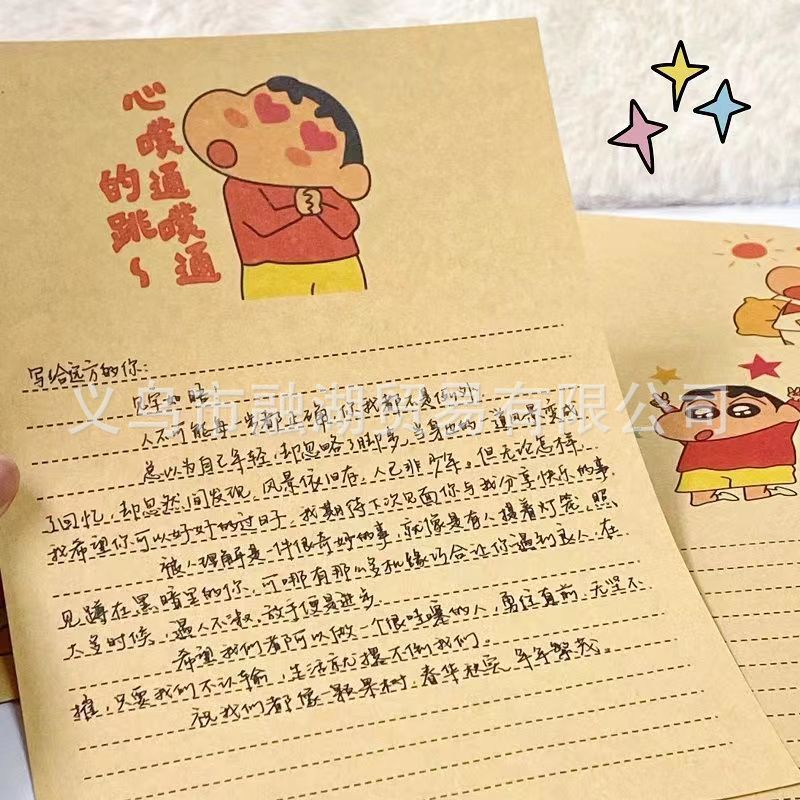 心
噗通噗通
的跳~
写给远方的你:
见字如晤!
人不可能每一步都正确,你我都不是例外
总以为自己年轻,却忽略了脚步,当身边的一道风景变成
了回忆,却忽然间发现,风景依旧在,人已非少年。但无论怎样
我希望你可以好好的过日子,我期待下次见面你与我分享快乐的事,
被人理解是一件很奇妙的事,就像是有人提着灯笼,照
见蹲在黑暗里的你,可哪有那么多机缘巧合让你遇到良人,在
大多时候,遇人不淑,放手便是进步
希望我们都可以做一个很哇塞的人,勇往直前,无坚不
摧,只要我们不认输,生活就撂不倒我们。
祝我们都像一颗果树,春华秋实 年年繁茂。
义乌市融湖贸易有限公司